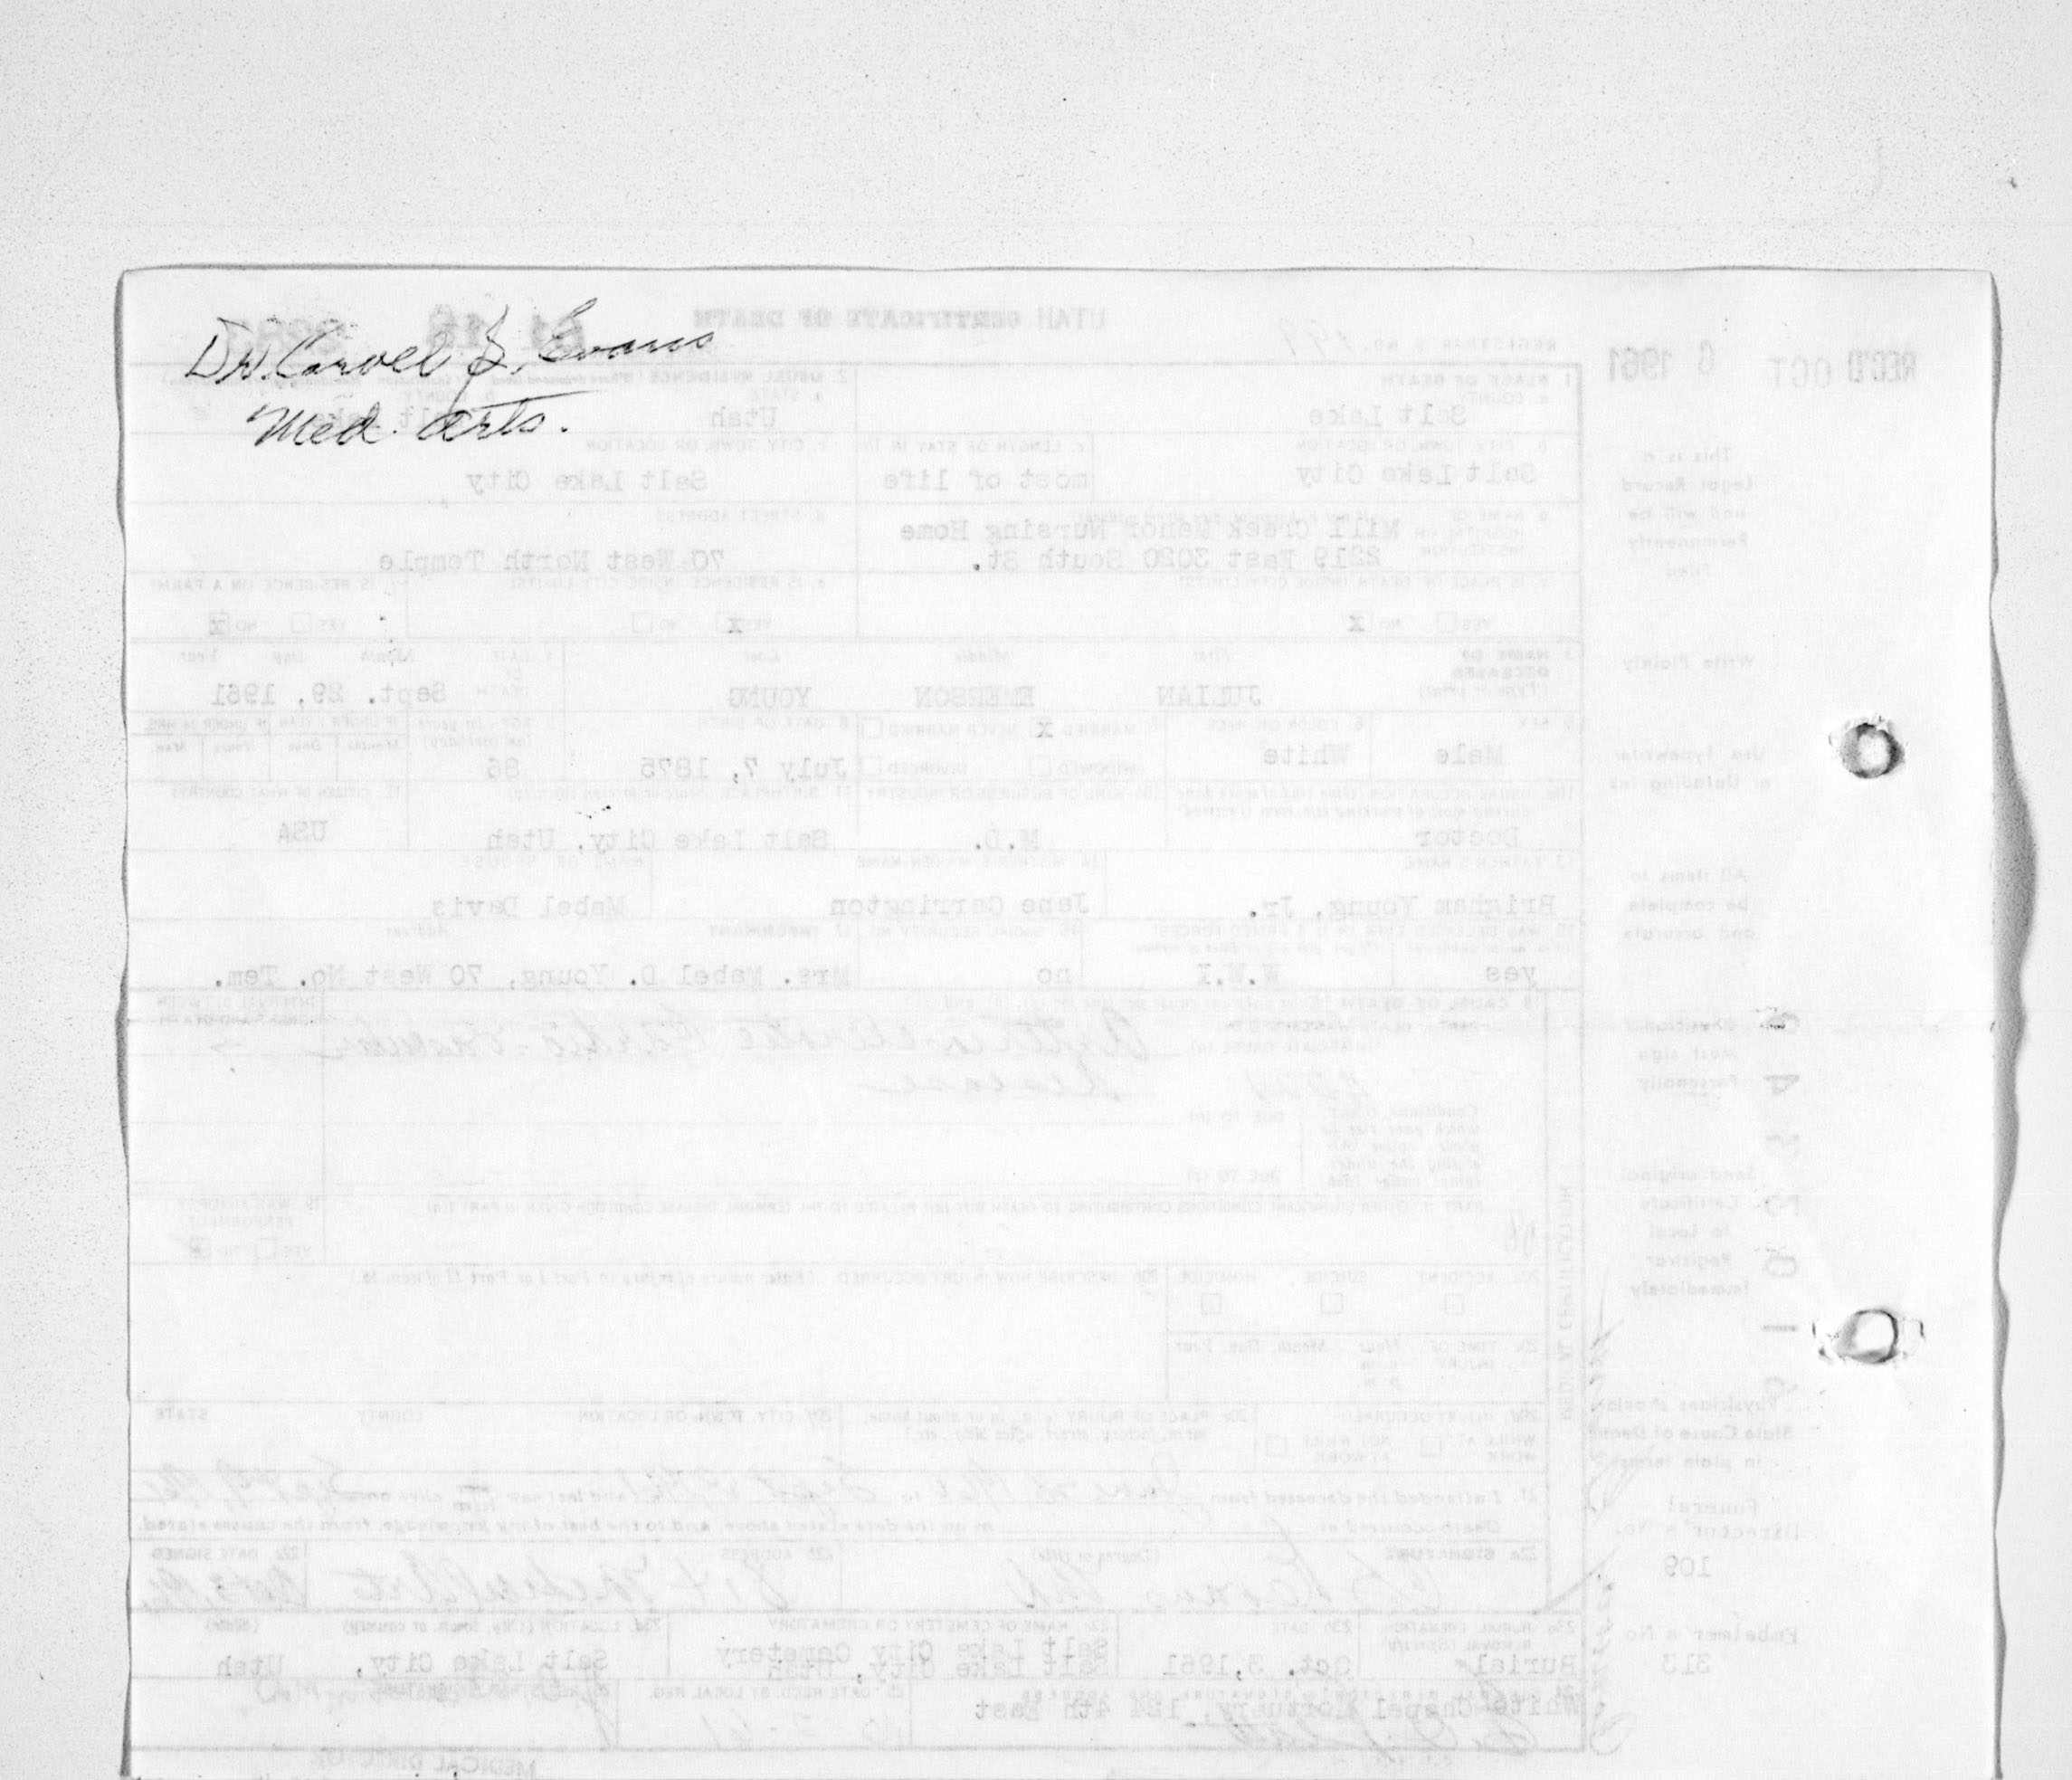 Dr. Carvel J. Evans
Med. Arts.
UTAH CERTIFICATE OF DEATH
REC'D OCT 6 1961
REGISTRAR'S NO.
1. PLACE OF DEATH
a. COUNTY
Salt Lake
2. USUAL RESIDENCE
a. STATE
Utah
b. COUNTY
Salt Lake
b. CITY, TOWN, OR LOCATION
Salt Lake City
c. LENGTH OF STAY IN 1b
most of life
c. CITY, TOWN, OR LOCATION
Salt Lake City
d. NAME OF HOSPITAL OR INSTITUTION
Mill Creek Manor Nursing Home
2219 East 3020 South St.
d. STREET ADDRESS
70 West North Temple
e. IS PLACE OF DEATH INSIDE CITY LIMITS?
YES NO X
e. IS RESIDENCE INSIDE CITY LIMITS?
YES X NO
f. IS RESIDENCE ON A FARM?
YES NO X
3. NAME OF DECEASED
(Type or print)
First Middle Last
JULIAN EMERSON YOUNG
4. DATE OF DEATH
Month Day Year
Sept. 29, 1961
5. SEX
Male
6. COLOR OR RACE
White
7. MARRIED X NEVER MARRIED
WIDOWED DIVORCED
8. DATE OF BIRTH
July 7, 1875
9. AGE (In years last birthday)
86
IF UNDER 1 YEAR IF UNDER 24 HRS.
Months Days Hours Min.
10a. USUAL OCCUPATION
Doctor
10b. KIND OF BUSINESS OR INDUSTRY
M.D.
11. BIRTHPLACE
Salt Lake City, Utah
12. CITIZEN OF WHAT COUNTRY?
USA
13. FATHER'S NAME
Brigham Young, Jr.
14. MOTHER'S MAIDEN NAME
Jane Carrington
NAME OF SPOUSE
Mabel Davis
15. WAS DECEASED EVER IN U.S. ARMED FORCES?
yes W.W.I
16. SOCIAL SECURITY NO.
no
17. INFORMANT Address
Mrs. Mabel D. Young, 70 West No. Tem.
18. CAUSE OF DEATH
INTERVAL BETWEEN ONSET AND DEATH
IMMEDIATE CAUSE (a)
disease
DUE TO (b)
DUE TO (c)
PART II. OTHER SIGNIFICANT CONDITIONS CONTRIBUTING TO DEATH BUT NOT RELATED TO THE TERMINAL DISEASE CONDITION GIVEN IN PART I(a)
19. WAS AUTOPSY PERFORMED?
YES NO
20a. ACCIDENT SUICIDE HOMICIDE
20b. DESCRIBE HOW INJURY OCCURRED. (Enter nature of injury in Part I or Part II of item 18.)
20c. TIME OF INJURY Hour Month, Day, Year
a.m.
p.m.
20d. INJURY OCCURRED
WHILE AT WORK NOT WHILE AT WORK
20e. PLACE OF INJURY (e.g., in or about home, farm, factory, street, office bldg., etc.)
20f. CITY, TOWN, OR LOCATION COUNTY STATE
21. I attended the deceased from to and last saw him alive on
Death occurred at m on the date stated above, and to the best of my knowledge, from the causes stated.
22a. SIGNATURE (Degree or title)
22b. ADDRESS
22c. DATE SIGNED
23a. BURIAL, CREMATION, REMOVAL (Specify)
Burial
23b. DATE
Oct. 3, 1961
23c. NAME OF CEMETERY OR CREMATORY
Salt Lake City Cemetery
Salt Lake City, Utah
23d. LOCATION (City, town, or county) (State)
Salt Lake City, Utah
White Chapel Mortuary, 124 4th East
25. DATE RECD. BY LOCAL REG.
MEDICAL DIRECTOR
MEDICAL CERTIFICATION
This is a
Legal Record
and will be
Permanently
Filed
Write Plainly
Use Typewriter
or Unfading Ink
All items to
be complete
and accurate
Physician
Must sign
Personally
Send original
Certificate
to Local
Registrar
Immediately
Physicians should
State Cause of Death
in plain terms
Funeral
Director's No.
109
Embalmer's No.
313